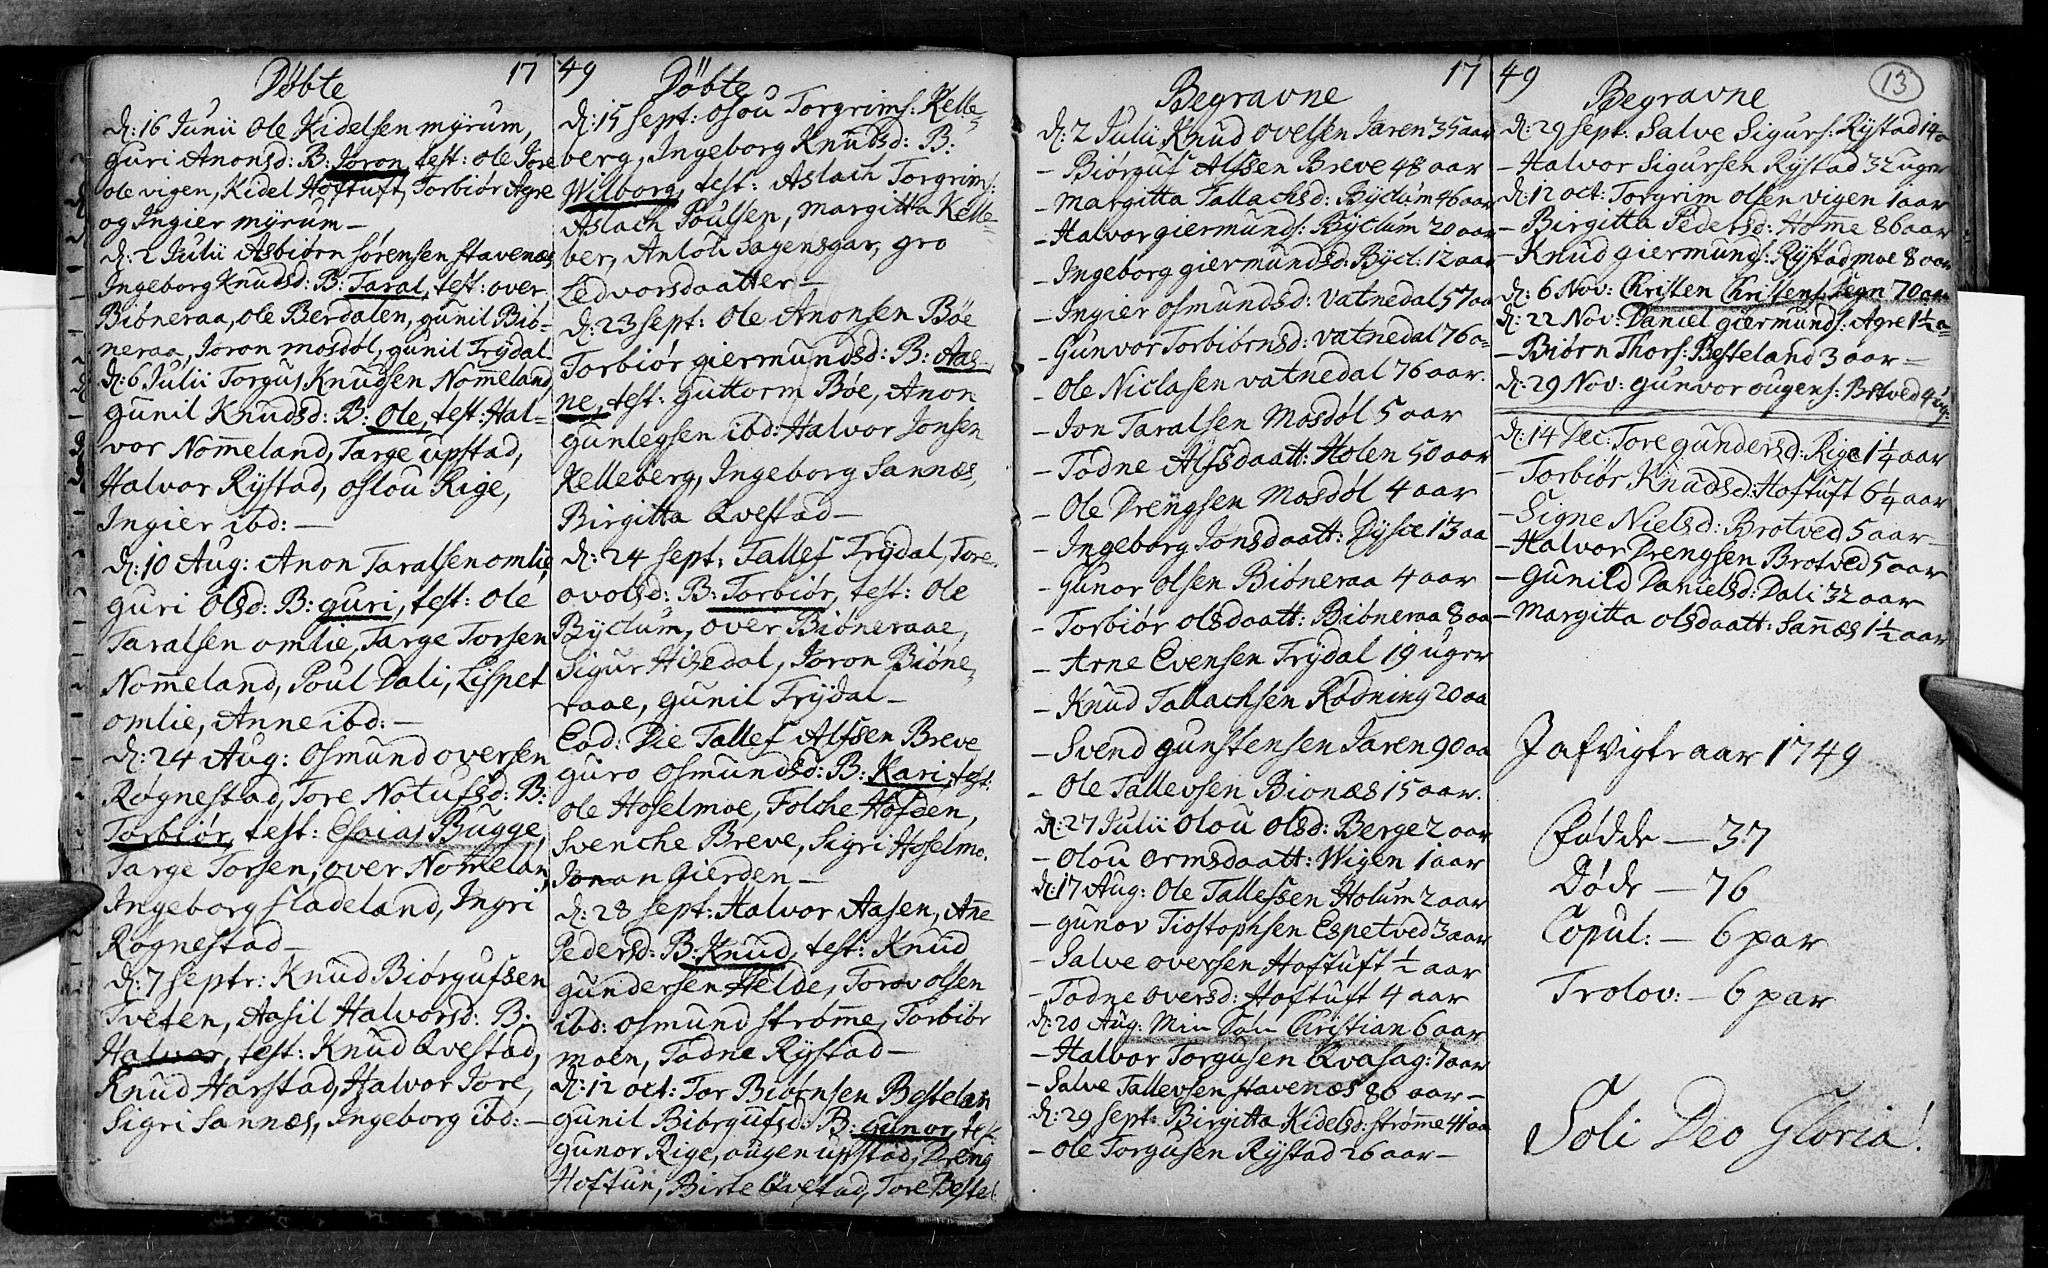 Døbte 17
d: 16 Junii Ole Kidelsen myrum,
guri Anonsd: B: Joron, test: Ole Jore
ole vigen, Kidel Hoftuft, Torbiør Agre
og Ingier myrum—
d: 2 Julii Asbiørn Sørensen stavenæs
Ingeborg Knudsd: B: Taral, test: over
Biøneraa, Ole Berdalen, gunil Biø-
neraa, Joron mosdøl, gunil Trydal
d: 6 Julii Torgus Knudsen Nomeland
gunil Knudsd: B: Ole, test: Hal-
vor Nomeland, Targe upstad,
Halvor Rystad, oslou Rige,
Ingier ibd:—
d: 10 Aug: Anon Taralsen omlie
guri Olsd: B: guri, test: Ole
Taralsen omlie, Targe Torsen
Nomeland, Poul Dali, Lispet
omlie, Anne ibd:—
d: 24 Aug: Osmund oversen
Røgnestad, Tore Notufsd: B:
Torbiør, test: Esaias Bugge,
Targe Torsen, over Nomelan
Ingeborg fladeland, Ingri
Røgnestad—
d: 7 septr: Knud Biørgufsen
Tveten, Aasil Halvorsd: B:
Halvor, test: Knud Qvestad,
Knud Harstad, Halvor Jore,
Sigri Sannæs, Ingeborg ibd:—
49 Døbte
d: 15 sept: Osou Torgrims: Kelle-
berg, Ingeborg Knudsd: B:
Wilborg, test: Aslach Torgrims:
Aslach Poulsen, Margitta Kelle-
ber, Anlou Sagensgar, gro
Ledvorsdaatter—
d: 23 sept: Ole Anonsen Bøe
Torbiør giermundsd: B: Aas-
ne, test: guttorm Bøe, Anon
gunlegsen ibd: Halvor Jonsen
Kelleberg, Ingeborg Sannæs,
Birgitta Qvestad—
d: 24 sept: Tallef Trydal, Tore
ovolsd: B: Torbiør, test: Ole
Byclum, over Biøneraae,
Sigur Hisedal, Joron Biøne-
raae, gunil Trydal—
Eod: Die Tallef Alfsen Breve
guro Osmundsd: B: Kari, test:
ole Hoselmoe, Folche Hofden,
Svenche Breve, Sigri Hoselmo.
Jonan Gierden—
d: 28 sept: Halvor Aasen, Ane
Pedersd: B: Knud, test: Knud
gundersen Helde, Torov olsen
ibd: osmund strømme, Torbiør
moen, Tadne Rystad—
d: 12 oct: Tor Biørnsen Bestelan
gunil Biørgufsd: B: gunor, test:
gunor Rige, augen upstad, Dreng
Hoftun, Birte Qvestad, Tore Bestel
Begravne 17
d: 2 Julii Knud ovelsen Jaren 35 aar
— Biørguf Alfsen Breve 48 aar
— Margitta Tallachsd: Byclum 46 aar
— Halvor giermunds: Byclum 20 aar
— Ingeborg giermundsd: Bycl: 12 aar
— Ingier osmundsd: vatnedal 57 aa
— Gunvor Torbiørnsd: vatnedal 76 a-
— Ole Niclasen vatnedal 76 aar.
— Jon Taralsen Mosdøl 5 aar
— Tadne Alfsdaatt: Holen 50 aar
— Ole Drengsen Mosdøl 4 aar
— Ingeborg Jonsdaatt: Dysce 13 aa
— Gunor Olsen Biøneraa 4 aar
— Torbiør olsdaatt: Biøneraa 8 aa
— Arne Evensen Trydal 19 uger
— Knud Tallachsen Rødning 20 aa
— Svend gunstensen Jaren 90 aa
— Ole Tallevsen Bionæs 15 aar.
d: 27 Julii Olou Olsd: Berge 2 aar
— Olou Ormsdaatt: Wigen 1 aar
d: 17 Aug: Ole Tallefsen Holum 2 aar
— gunov Tiostophsen Espetved 3 aar
— Salve oversen Hoftuft ½ aar
— Tadne oversd: Hoftuft 4 aar
d: 20 Aug: Min Søn Christian 6 aar
— Halvor Torgusen Qvasag: 7 aar
— Salve Tallevsen stavenæs 86 aar—
d: 29 sept: Birgitta Kidelsd: strømme 41 aa
— Ole Torgusen Rystad 26 aar—
49 Begravne 13
d: 29 sept: Salve Sigurs: Rystad 14 a
— Halvor Sigursen Rystad 32 uger
d: 12 oct: Torgrim Olsen vigen 1 aar
— Birgitta Pedersd: Homme 86 aar
— Knud giermuns: Rystadmoe 8 aar
d: 6 Nov: Christen Christens: Degn 70 aar
d: 22 Nov: Daniel giermunds: Agre 1½ a-
— Biørn Thors: Besteland 3 aar—
d: 29 Nov: gunvor ougens: Brotved 4 ug:
d: 14 Dec: Tore gundersd: Rige 1¼ aar
— Torbiør Knudsd: Hoftuft 6¼ aar
— Signe Nielsd: Brotved 5 aar—
— Halvor Drengsen Brotved 5 aar
— Gunild Danielsd: Dali 32 aar
— Margitta olsdaatt: Sannæs 1½ aar
I afvigte aar 1749
Fødde — 37
Døde — 76
Copul: — 6 par
Trolov: — 6 par
Soli Deo Gloria!